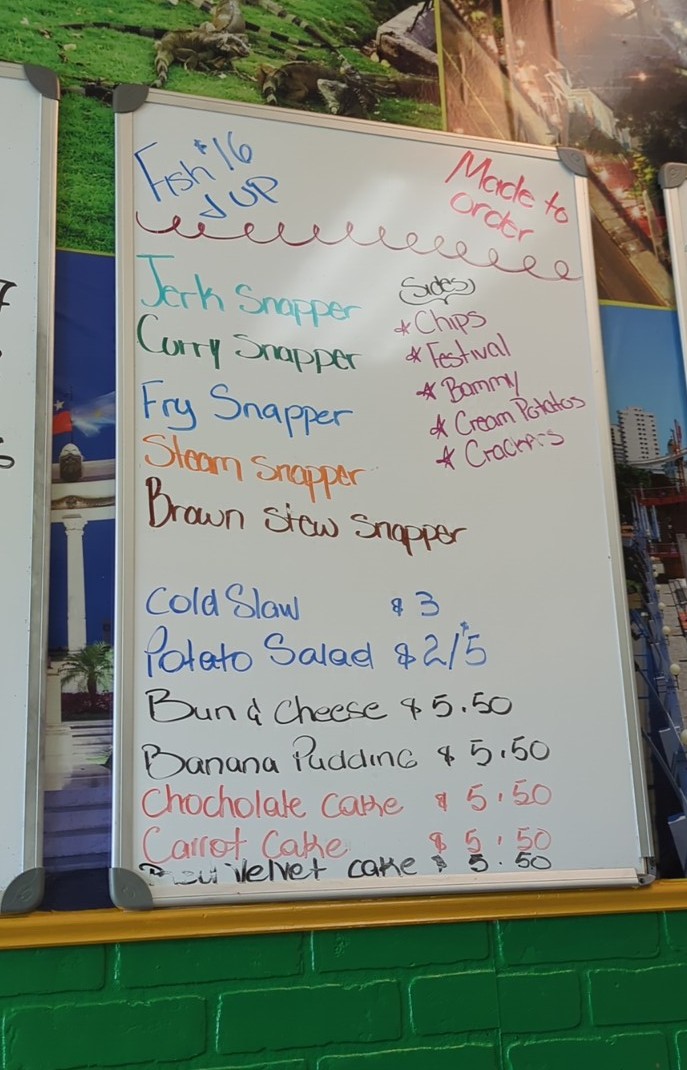 Fish $16
& UP
Made to
order
Jerk Snapper
Curry Snapper
Fry Snapper
Steam Snapper
Brown Stew Snapper
Sides
* Chips
* Festival
* Bammy
* Cream Potatos
* Crackers
Cold Slaw $3
Potato Salad $2/$5
Bun & Cheese $5.50
Banana Pudding $5.50
Chocholate cake $5.50
Carrot Cake $5.50
Velvet cake $5.50